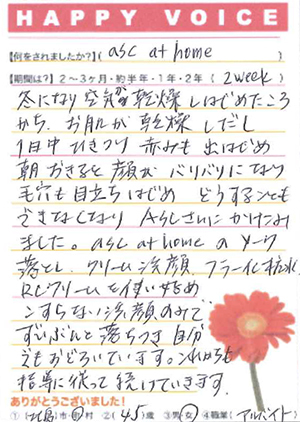 HAPPY VOICE
【何をされましたか？】( asc at home )
【期間は？】2～3ヶ月・約半年・1年・2年 ( 2week )
冬になり空気が乾燥しはじめたころ
から、お肌が乾燥しだし
1日中ひきつり赤みも出はじめ
朝おきると顔がバリバリになり
毛穴も目立ちはじめ どうすることも
できなくなり ASCさんにかけこみ
ました。asc at home の メーク
落とし、クリーム洗顔、フラーレン化粧水
RCクリームを使い始め
こすらない洗顔のみで、
ずいぶんと落ちつき自分
でもおどろいています。これからも
指導に従って続けていきます。
ありがとうございました！
① 市・町・村 ② ( 45 ) 歳 ③男・女 ④職業 ( アルバイト )